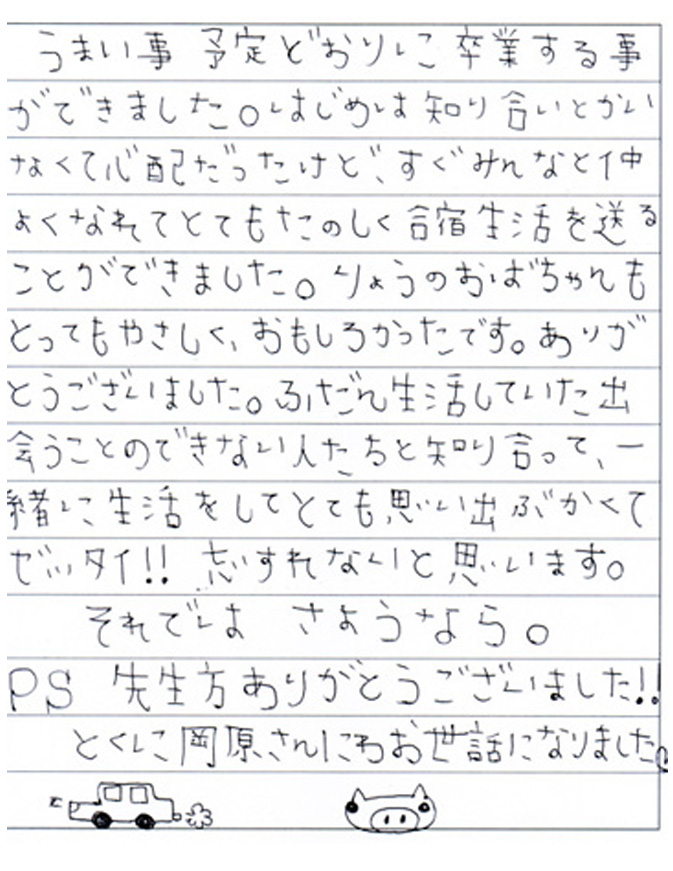 うまい事 予定どおりに卒業する事
ができました。はじめは知り合いとかい
なくて心配だったけど、すぐみんなと仲
よくなれてとてもたのしく合宿生活を送る
ことができました。りょうのおばちゃんも
とってもやさしく、おもしろかったです。ありが
とうございました。ふだん生活していた出
会うことのできない人たちと知り合って、一
緒に生活をしてとても思い出ぶかくて
ゼッタイ!! 忘すれないと思います。
それでは さようなら。
PS 先生方ありがとうございました!!
とくに岡原さんにわお世話になりました。